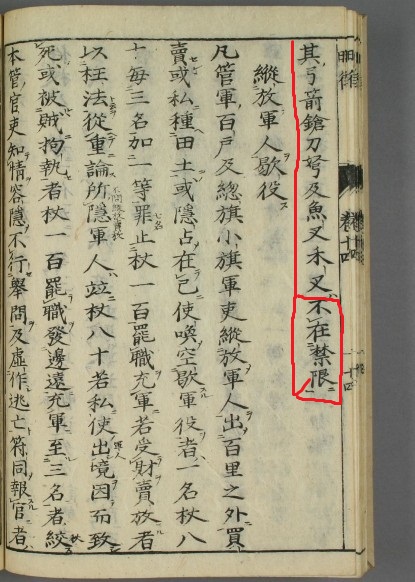 其弓箭鎗刀弩及魚叉禾叉不在禁限
縱放軍人歇役
凡管軍百戶及總旗小旗軍吏縱放軍人出百里之外買
賣或私種田土或隱占在己使喚空歇軍役者一名杖八
十每三名加一等罪止杖一百罷職充軍若受財賣放者
以枉法從重論所隱軍人竝杖八十若私使出境因而致
死或被賊拘執者杖一百罷職發邊遠充軍至三名者絞
本管官吏知情容隱不行舉問及虛作逃亡符同報官者